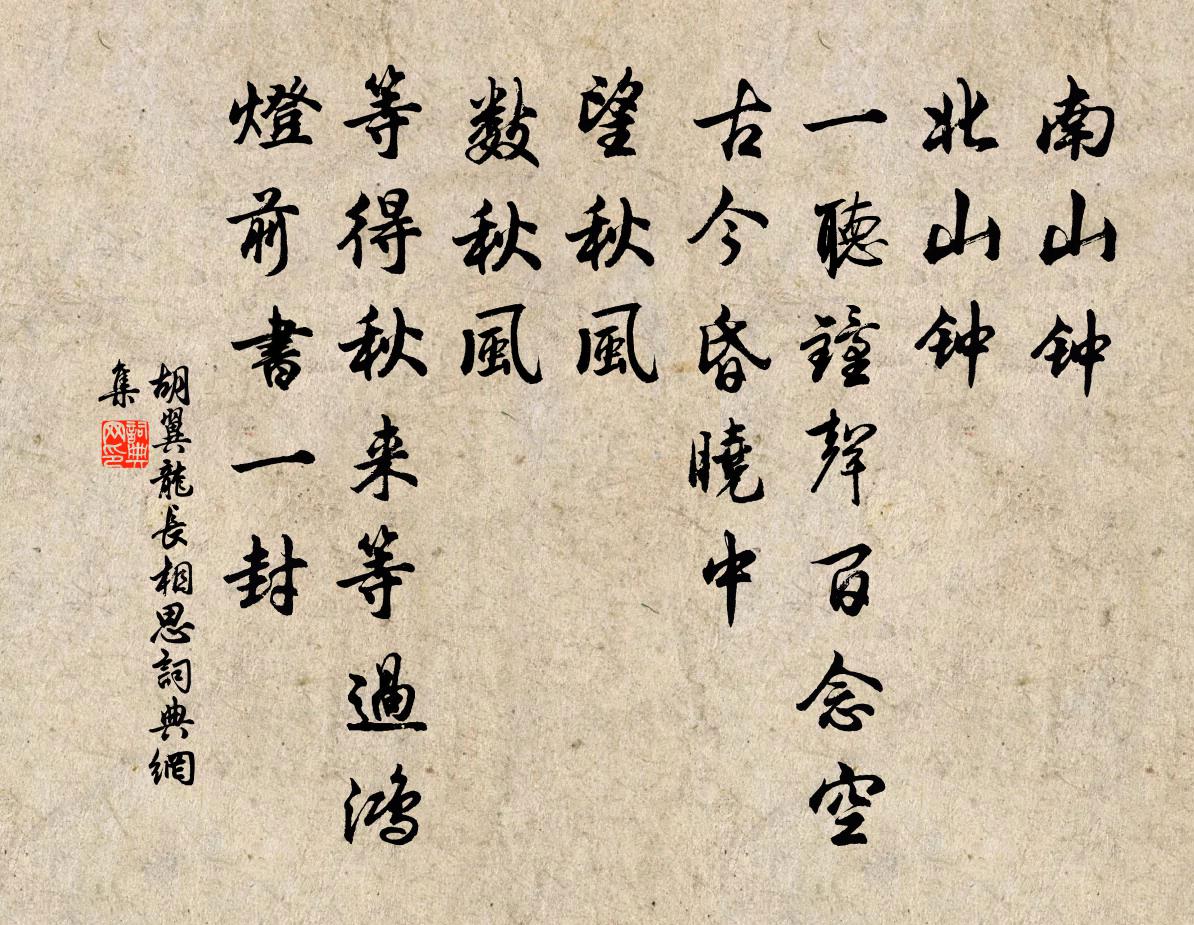 南山钟
北山钟
一聽鐘聲百念空
古今昏曉中
望秋風
数秋風
等得秋来等過鴻
燈前書一封
胡翼龍長相思詞典網
集
詞典
网印